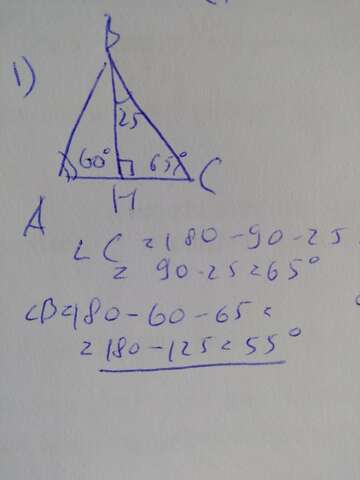 1)
B
25
60°
65°
A
H
C
∠C = 180 - 90 - 25
= 90 - 25 = 65°
∠B = 180 - 60 - 65 =
= 180 - 125 = 55°